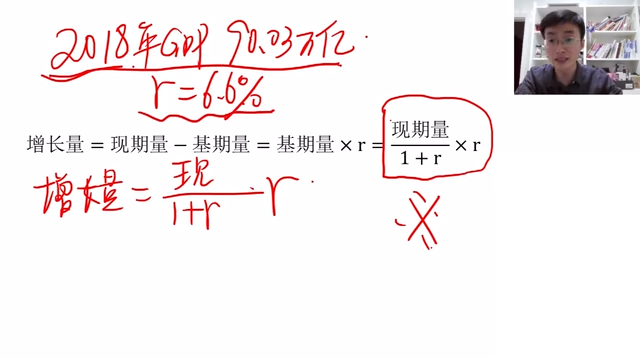 2018年GDP 90.03万亿.
r=6.6%
增长量 = 现期量 − 基期量 = 基期量 × r = 现期量/(1 + r) × r
增长量 = 现/(1+r) · r